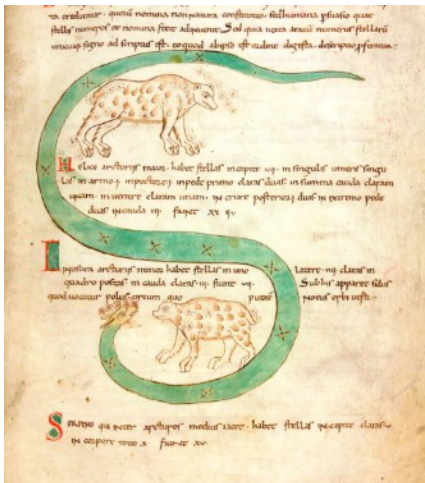 ta credamur. quorū nomina non natura constituit. sed humana psuasio quae
stellis numeros & nomina adposuit. Sed quia iuxta aratū numerus stellarū
unicuiq signo adscriptus est. eo quod ab ipso est ordine digesta. descriptio pferamus.
Helice arcturus maior. habet stellas in capite vii. in singulis umeris singu
las in armo .i. in pectore .i. in pede primo claras duas. in summa cauda claram
unam. in ventre claram unam. in crure posteriori duas in extremo pede
duas in cauda iii. fiunt xx
Inosura arcturus minor habet stellas in uno latere .iiii. claras in
quadro positas in cauda claras .iii. fiunt vii. Sub his apparet sidus
quod vocatur polus. circum quo orbi verti.
Serpens qui inter arcturos medius iacet. habet stellas in capite claras v
in corpore toto x fiunt xv.